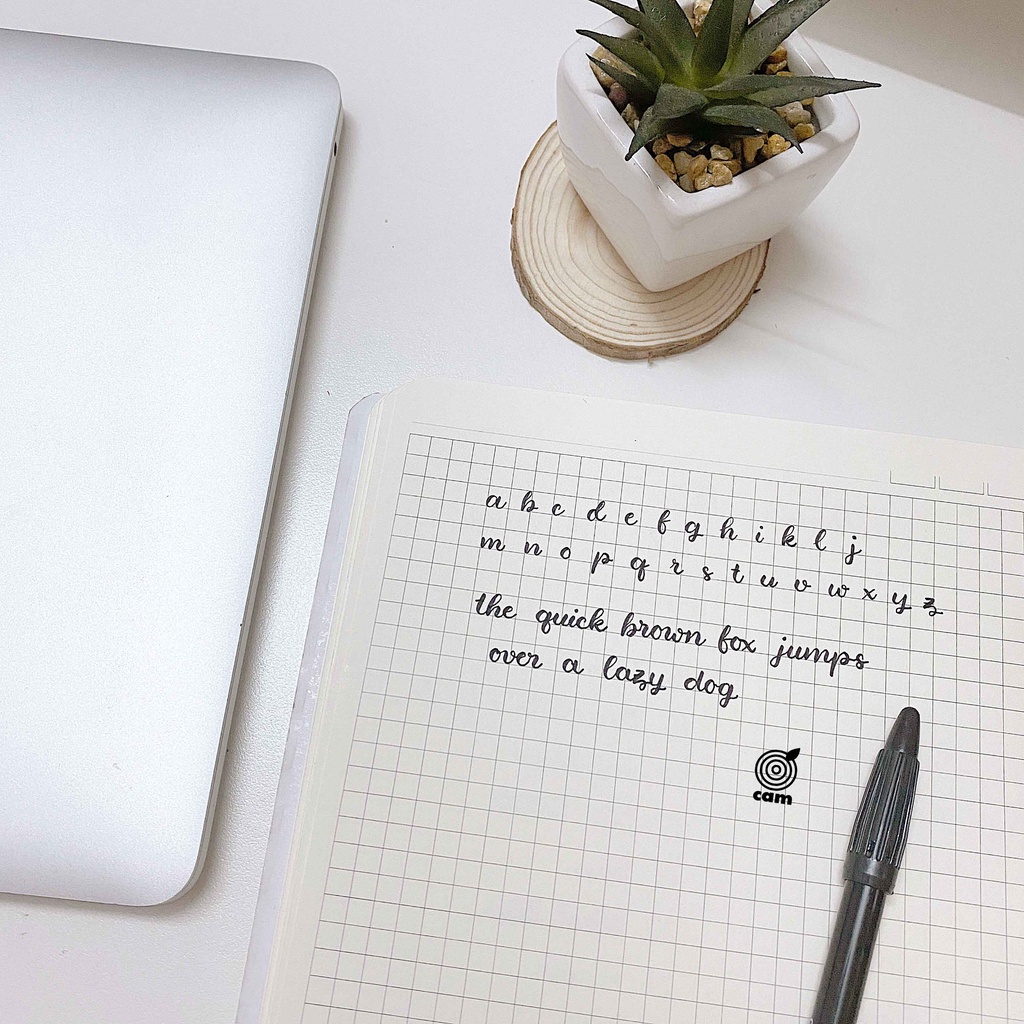 a b c d e f g h i k l j
m n o p q r s t u v w x y z
the quick brown fox jumps
over a lazy dog
cam